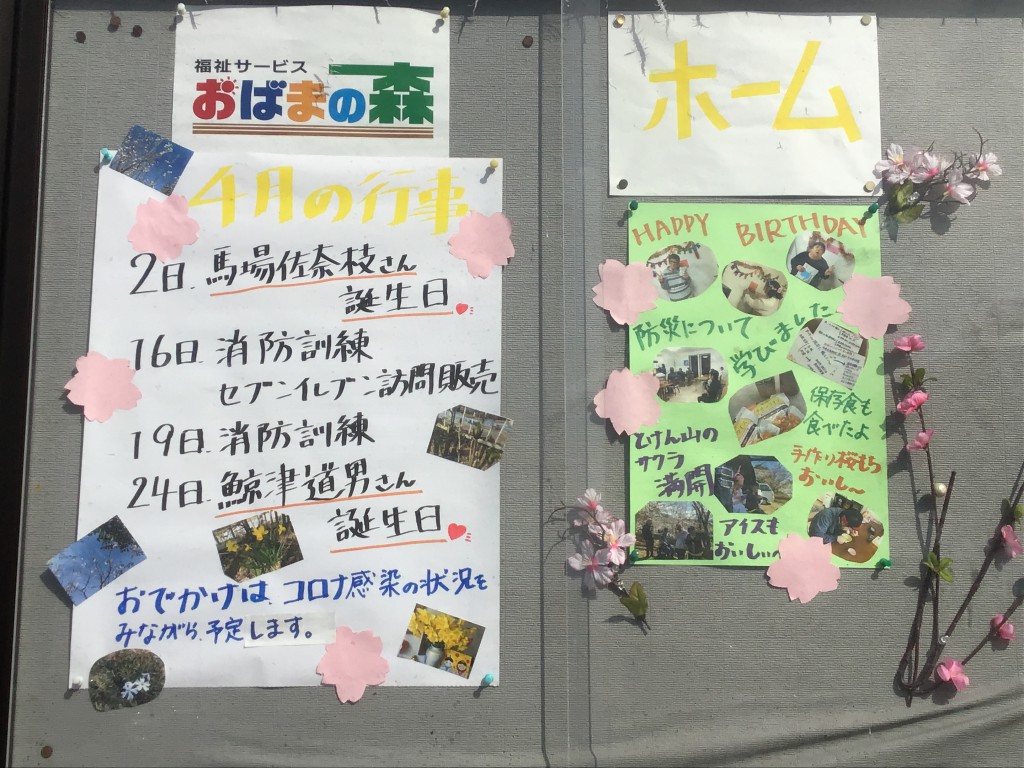 福祉サービス
おばまの森
4月の行事
2日. 馬場佐奈枝さん
誕生日
16日. 消防訓練
セブンイレブン訪問販売
19日. 消防訓練
24日. 鯨津道男さん
誕生日
おでかけは、コロナ感染の状況を
みながら、予定します。
ホーム
HAPPY BIRTHDAY
防災について
学びました
保存食も
食べたよ
とけん山の
サクラ
満開
手作り桜もち
おいし〜
アイスも
おいしい〜